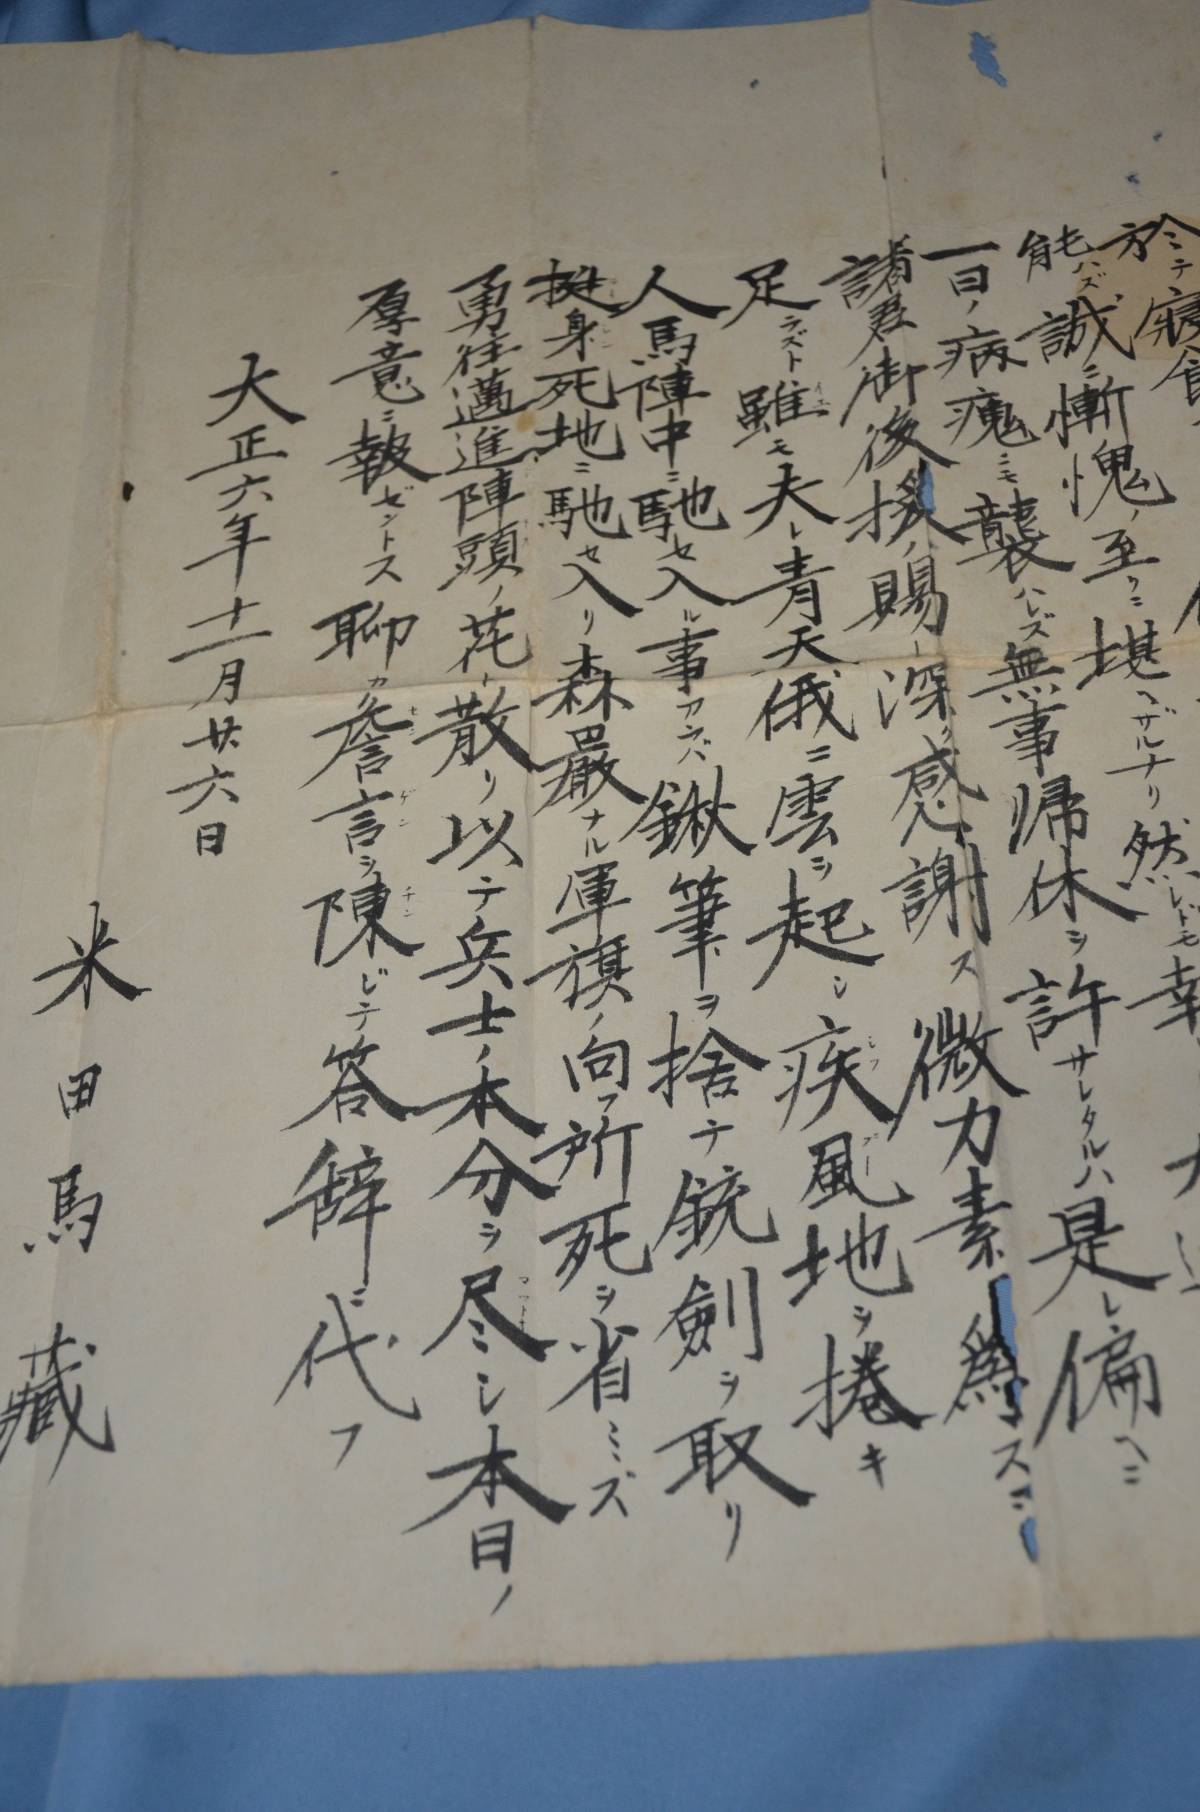 於テ寝食
能ハズ誠ニ慚愧ノ至リニ堪ヘザルナリ然レドモ幸
一日ノ病魔ニモ襲ハレズ無事帰休ヲ許サレタルハ是レ偏ヘニ
諸君御後援ノ賜ト深ク感謝ス微力素ヨリ為スニ
足ラズト雖モ夫レ青天俄ニ雲ヲ起シ疾風地ヲ捲キ
人馬陣中ニ馳セ入ル事アラバ鍬筆ヲ捨テ銃劍ヲ取リ
挺身死地ニ馳セ入リ森厳ナル軍旗ノ向フ所死ヲ省ミズ
勇往邁進陣頭ノ花ト散リ以テ兵士ノ本分ヲ尽シ本日ノ
厚意ニ報ゼントス聊カ詹言ヲ陳ジテ答辞ニ代フ
大正六年十一月廿六日
米田馬藏